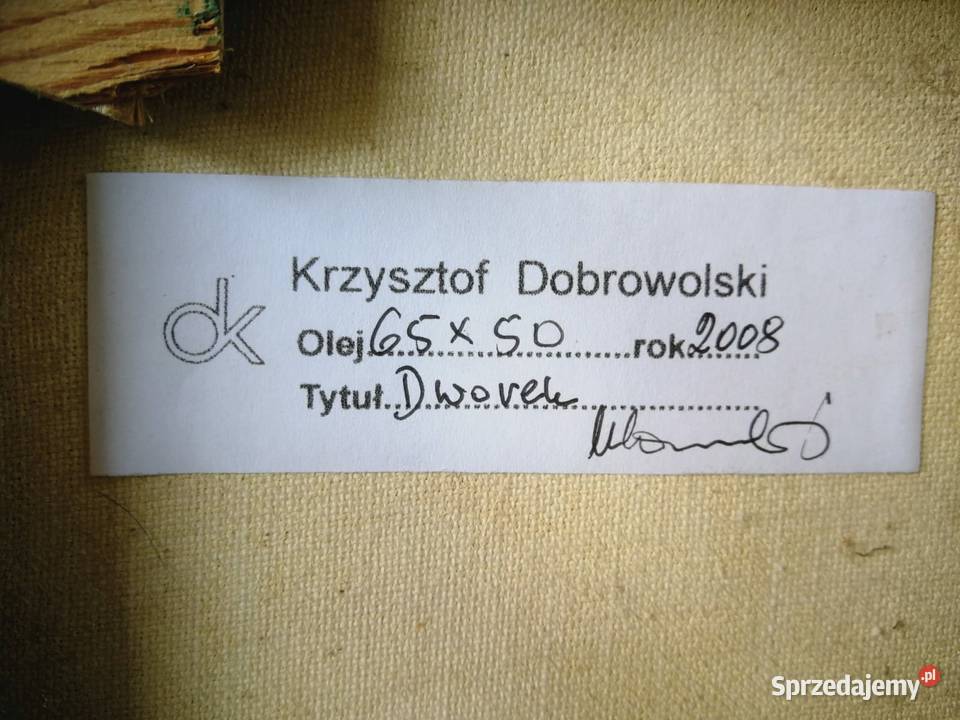 dk
Krzysztof Dobrowolski
Olej 65 x 50 rok 2008
Tytuł Dworek
Sprzedajemy.pl